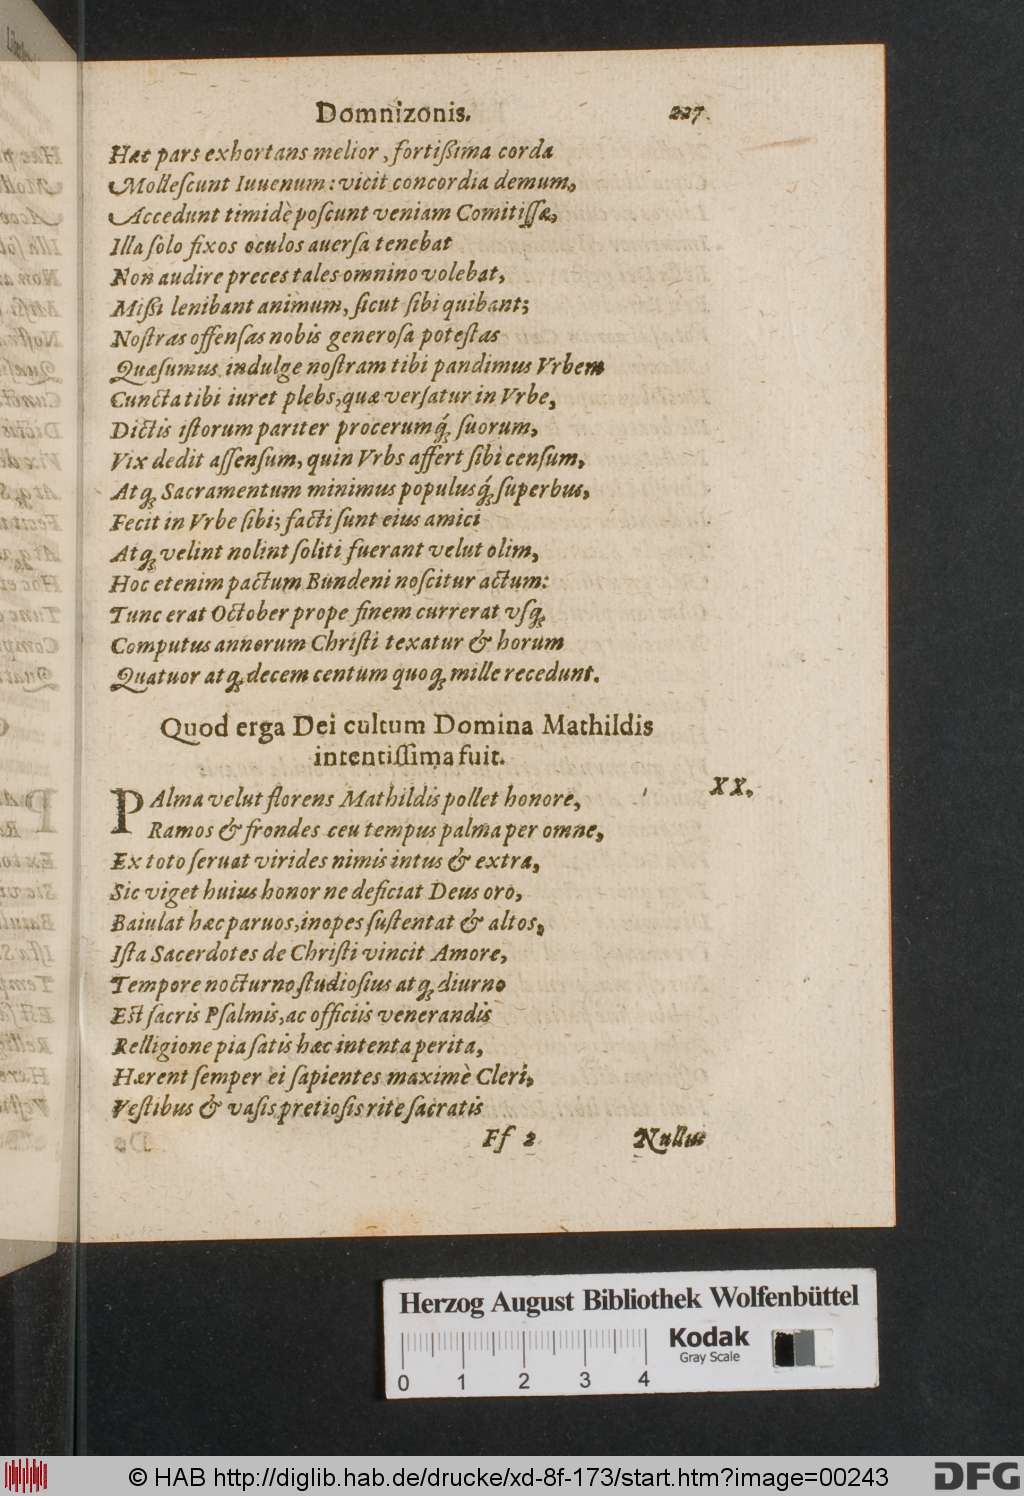 Domnizonis. 227.
Hæc pars exhortans melior, fortißima corda
Molleſcunt Iuuenum: vicit concordia demum,
Accedunt timidè poſcunt veniam Comitiſſæ,
Illa ſolo fixos oculos auerſa tenebat
Non audire preces tales omnino volebat,
Mißi lenibant animum, ſicut ſibi quibant;
Noſtras offenſas nobis generoſa poteſtas
Quæſumus indulge noſtram tibi pandimus Vrbem
Cuncta tibi iuret plebs, quæ verſatur in Vrbe,
Dictis iſtorum pariter procerumq́; ſuorum,
Vix dedit aſſenſum, quin Vrbs affert ſibi cenſum,
Atq; Sacramentum minimus populusq́; ſuperbus,
Fecit in Vrbe ſibi; facti ſunt eius amici
Atq; velint nolint ſoliti fuerant velut olim,
Hoc etenim pactum Bundeni noſcitur actum:
Tunc erat October prope finem currerat vſq;
Computus annorum Chriſti texatur & horum
Quatuor atq; decem centum quoq; mille recedunt.
Quod erga Dei cultum Domina Mathildis
intentiſſima fuit.
XX.
PAlma velut florens Mathildis pollet honore,
Ramos & frondes ceu tempus palma per omne,
Ex toto ſeruat virides nimis intus & extra,
Sic viget huius honor ne deficiat Deus oro,
Baiulat hæc paruos, inopes ſuſtentat & altos,
Iſta Sacerdotes de Chriſti vincit Amore,
Tempore nocturno ſtudioſius atq; diurno
Eſt ſacris Pſalmis, ac officiis venerandis
Relligione pia ſatis hæc intenta perita,
Hærent ſemper ei ſapientes maximè Cleri,
Veſtibus & vaſis pretioſis rite ſacratis
Ff 2 Nullus
Herzog August Bibliothek Wolfenbüttel
Kodak
Gray Scale
0 1 2 3 4
© HAB http://diglib.hab.de/drucke/xd-8f-173/start.htm?image=00243
DFG